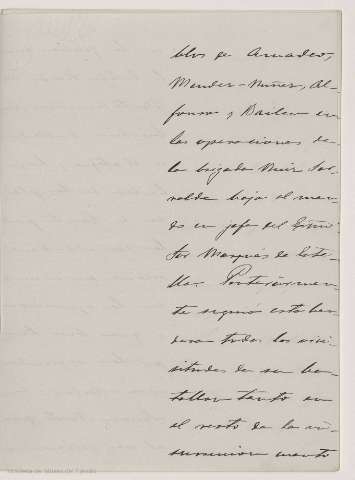 blos de Amadeo,
Mendez-Nuñez, Al-
fonso y Bailen en
las operaciones de
la brigada Ruiz
bajo el man-
do en jefe del Exmo
Sor Marqués de Este-
lla. Posteriormen-
te siguió esta ban-
dera todas las vici-
situdes de su ba-
tallon tanto en
el resto de la in-
surreccion